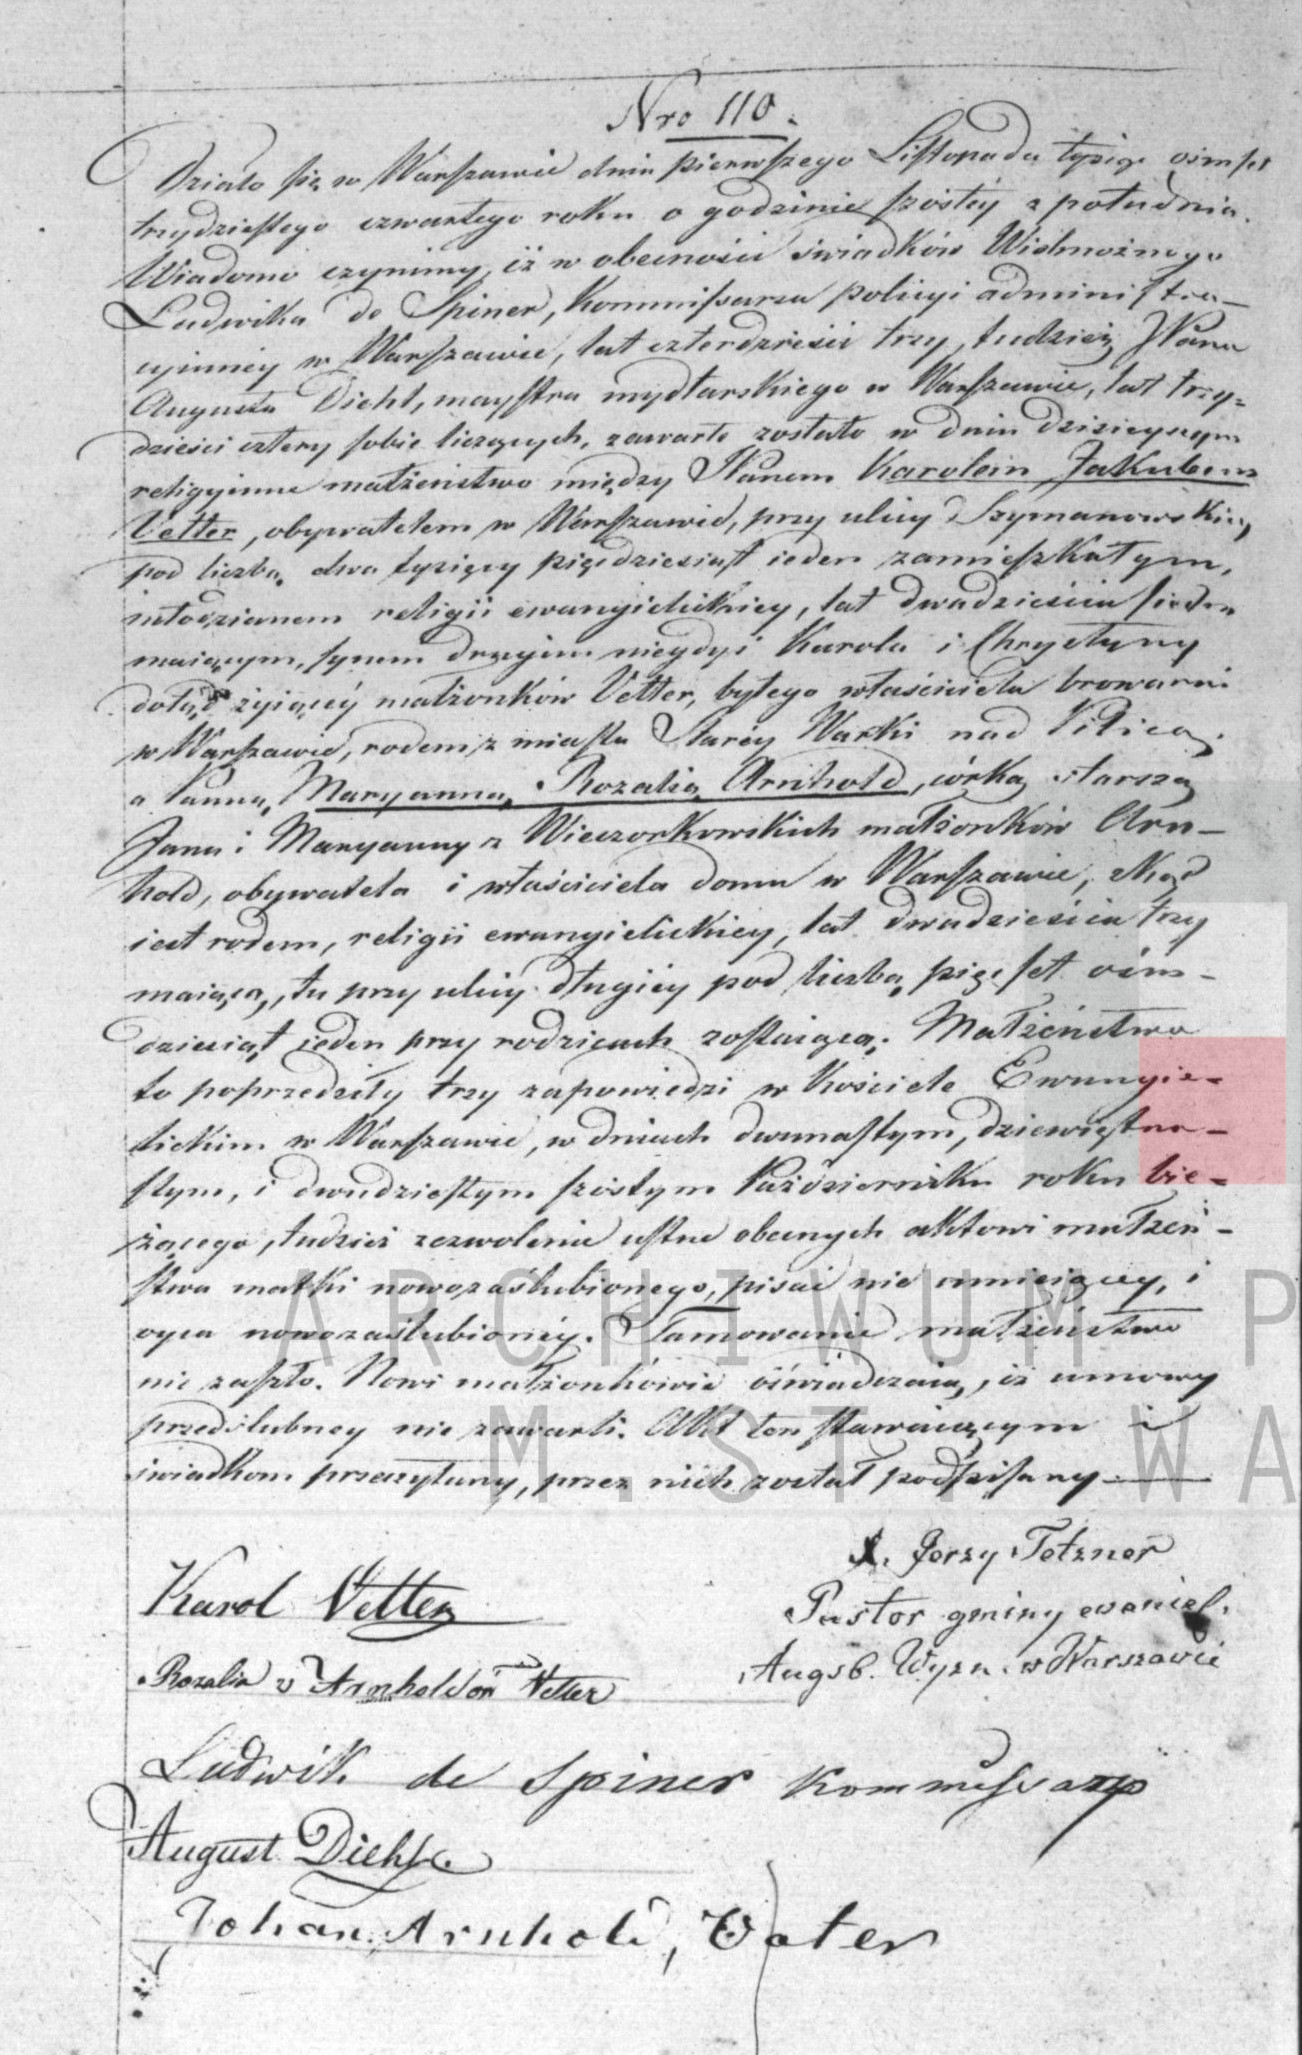 Nro 110.
Działo się w Warszawie dnia pierwszego Listopada tysiąc ośmset
trzydziestego czwartego roku o godzinie szóstey z południa.
Wiadomo czynimy, iż w obecności świadków Wielmożnego
Ludwika de Spiner, Kommissarza policyi administra-
cyinney w Warszawie, lat czterdzieści trzy, tudzież Pana
Augusta Diehl, maystra mydlarskiego w Warszawie, lat trzy-
dzieści cztery sobie liczących, zawarte zostało w dniu dzisieyszym
religyine małżeństwo między Panem Karolem Jakubem
Vetter, obywatelem w Warszawie, przy ulicy Szymanowskiey
pod liczbą dwa tysięcy pięćdziesiąt ieden zamieszkałym,
młodzianem religii ewangielickiey, lat dwadzieścia siedm
maiącym, synem drugim niegdyś Karola i Chrystyny
dotąd żyiącéy małżonków Vetter, byłego właściciela browaru
w Warszawie, rodem z miasta Staréy Warki nad Pilicą.
a Panną Maryanną Rozalią Arnhold, córką starszą
Jana i Maryanny z Wieczorkowskich małżonków Arn-
hold, obywatela i właściciela domu w Warszawie, skąd
iest rodem, religii ewangielickiey, lat dwadzieścia trzy
maiącą, tu przy ulicy długiéy pod liczbą pięćset óśm-
dziesiąt ieden przy rodzicach zostaiącą. Małżeństwo
to poprzedziły trzy zapowiedzi w Kościele Ewangie-
lickim w Warszawie, w dniach dwunastym, dziewiętna-
stym, i dwudziestym szóstym Października roku bie-
żącego, tudzież zezwolenie ustne obecnych aktowi małżeń-
stwa matki nowozaślubionego, pisać nie umieiącey, i
oyca nowozaślubionéy. Tamowanie małżeństwa
nie zaszło. Nowi małżonkowie oświadczaią, iż umowy
przedślubney nie zawarli. Akt ten stawaiącym i
świadkom przeczytany, przez nich został podpisany.
X. Jerzy Tetzner
Karol Vetter
Pastor gminy ewaniel.
Augsb. Wyzn. w Warszawie
Rozalia z Arnholdów Vetter
Ludwik de Spiner Kommissarz
August Diehl
Johan Arnhold, Vater
ARCHIWUM P
M.ST.WA